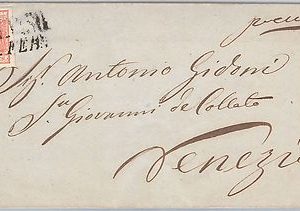 FEB.
Sig. Antonio Gidoni
S.n Giovanni de Collato
Venezi